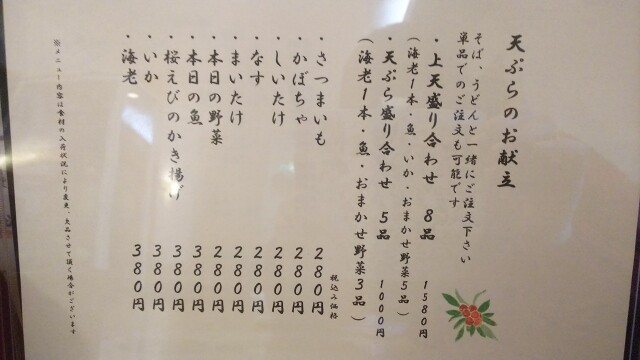 天ぷらのお献立
そば、うどんと一緒にご注文下さい
単品でのご注文も可能です
・上天盛り合わせ 8品 1580円
(海老1本・魚・いか・おまかせ野菜5品)
・天ぷら盛り合わせ 5品 1000円
(海老1本・魚・おまかせ野菜3品)
税込み価格
・さつまいも 280円
・かぼちゃ 280円
・しいたけ 280円
・なす 280円
・まいたけ 280円
・本日の野菜 280円
・本日の魚 380円
・桜えびのかき揚げ 380円
・いか 380円
・海老 380円
※メニュー内容は食材の入荷状況により変更、欠品させて頂く場合がございます